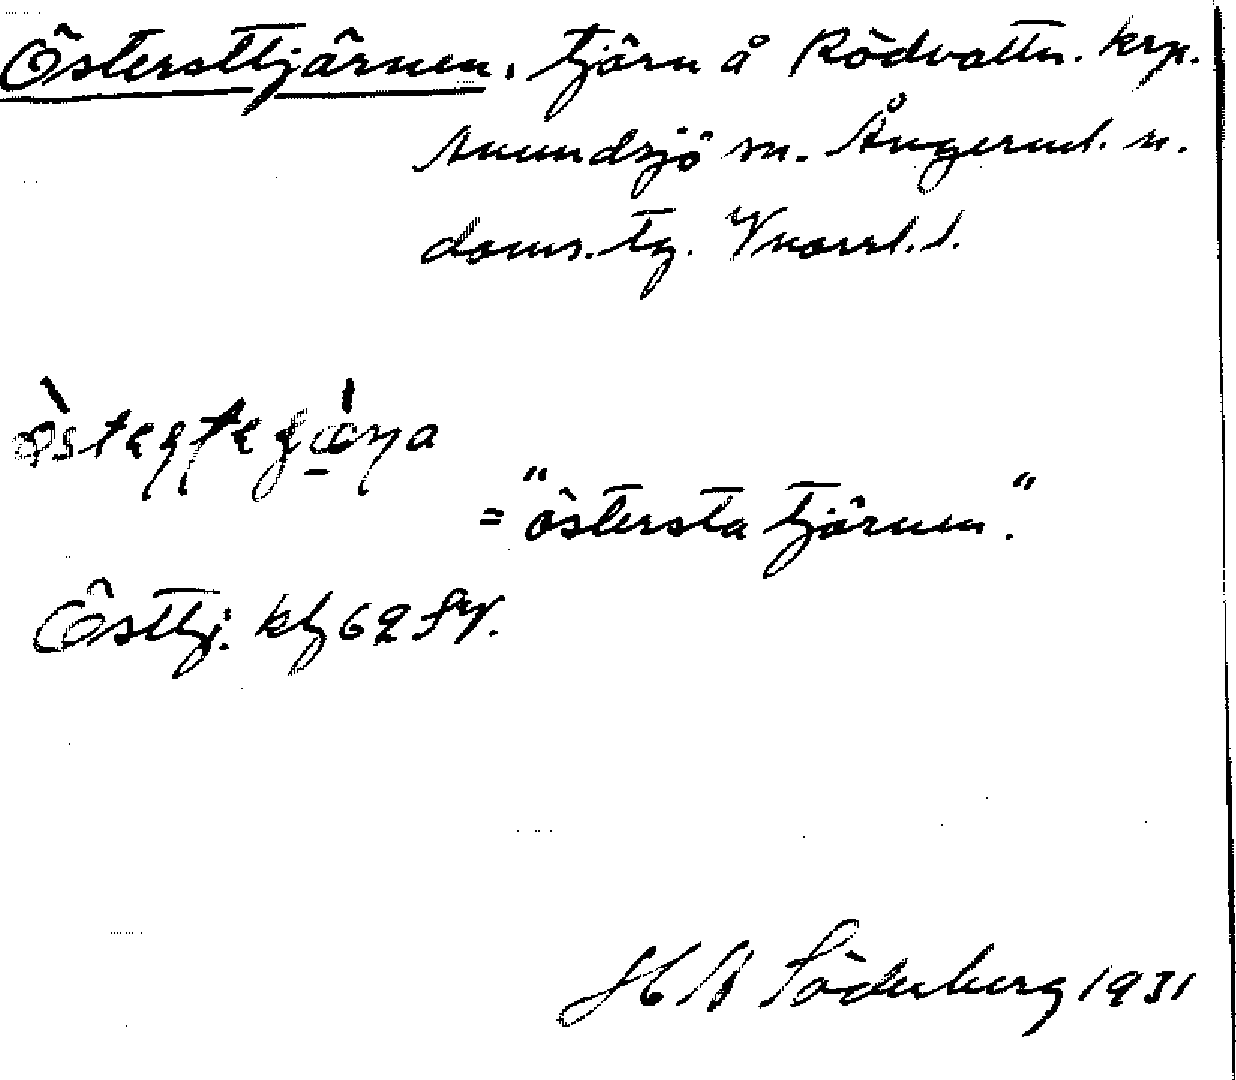 Östersttjärnen. tjärn å Rödvattn. krp.
Anundsjö sn. Ångerml. n.
doms. tg. Vnorrl. l.
= "östersta tjärnen".
Östtj. kbl 62 SV.
H A Söderberg 1931